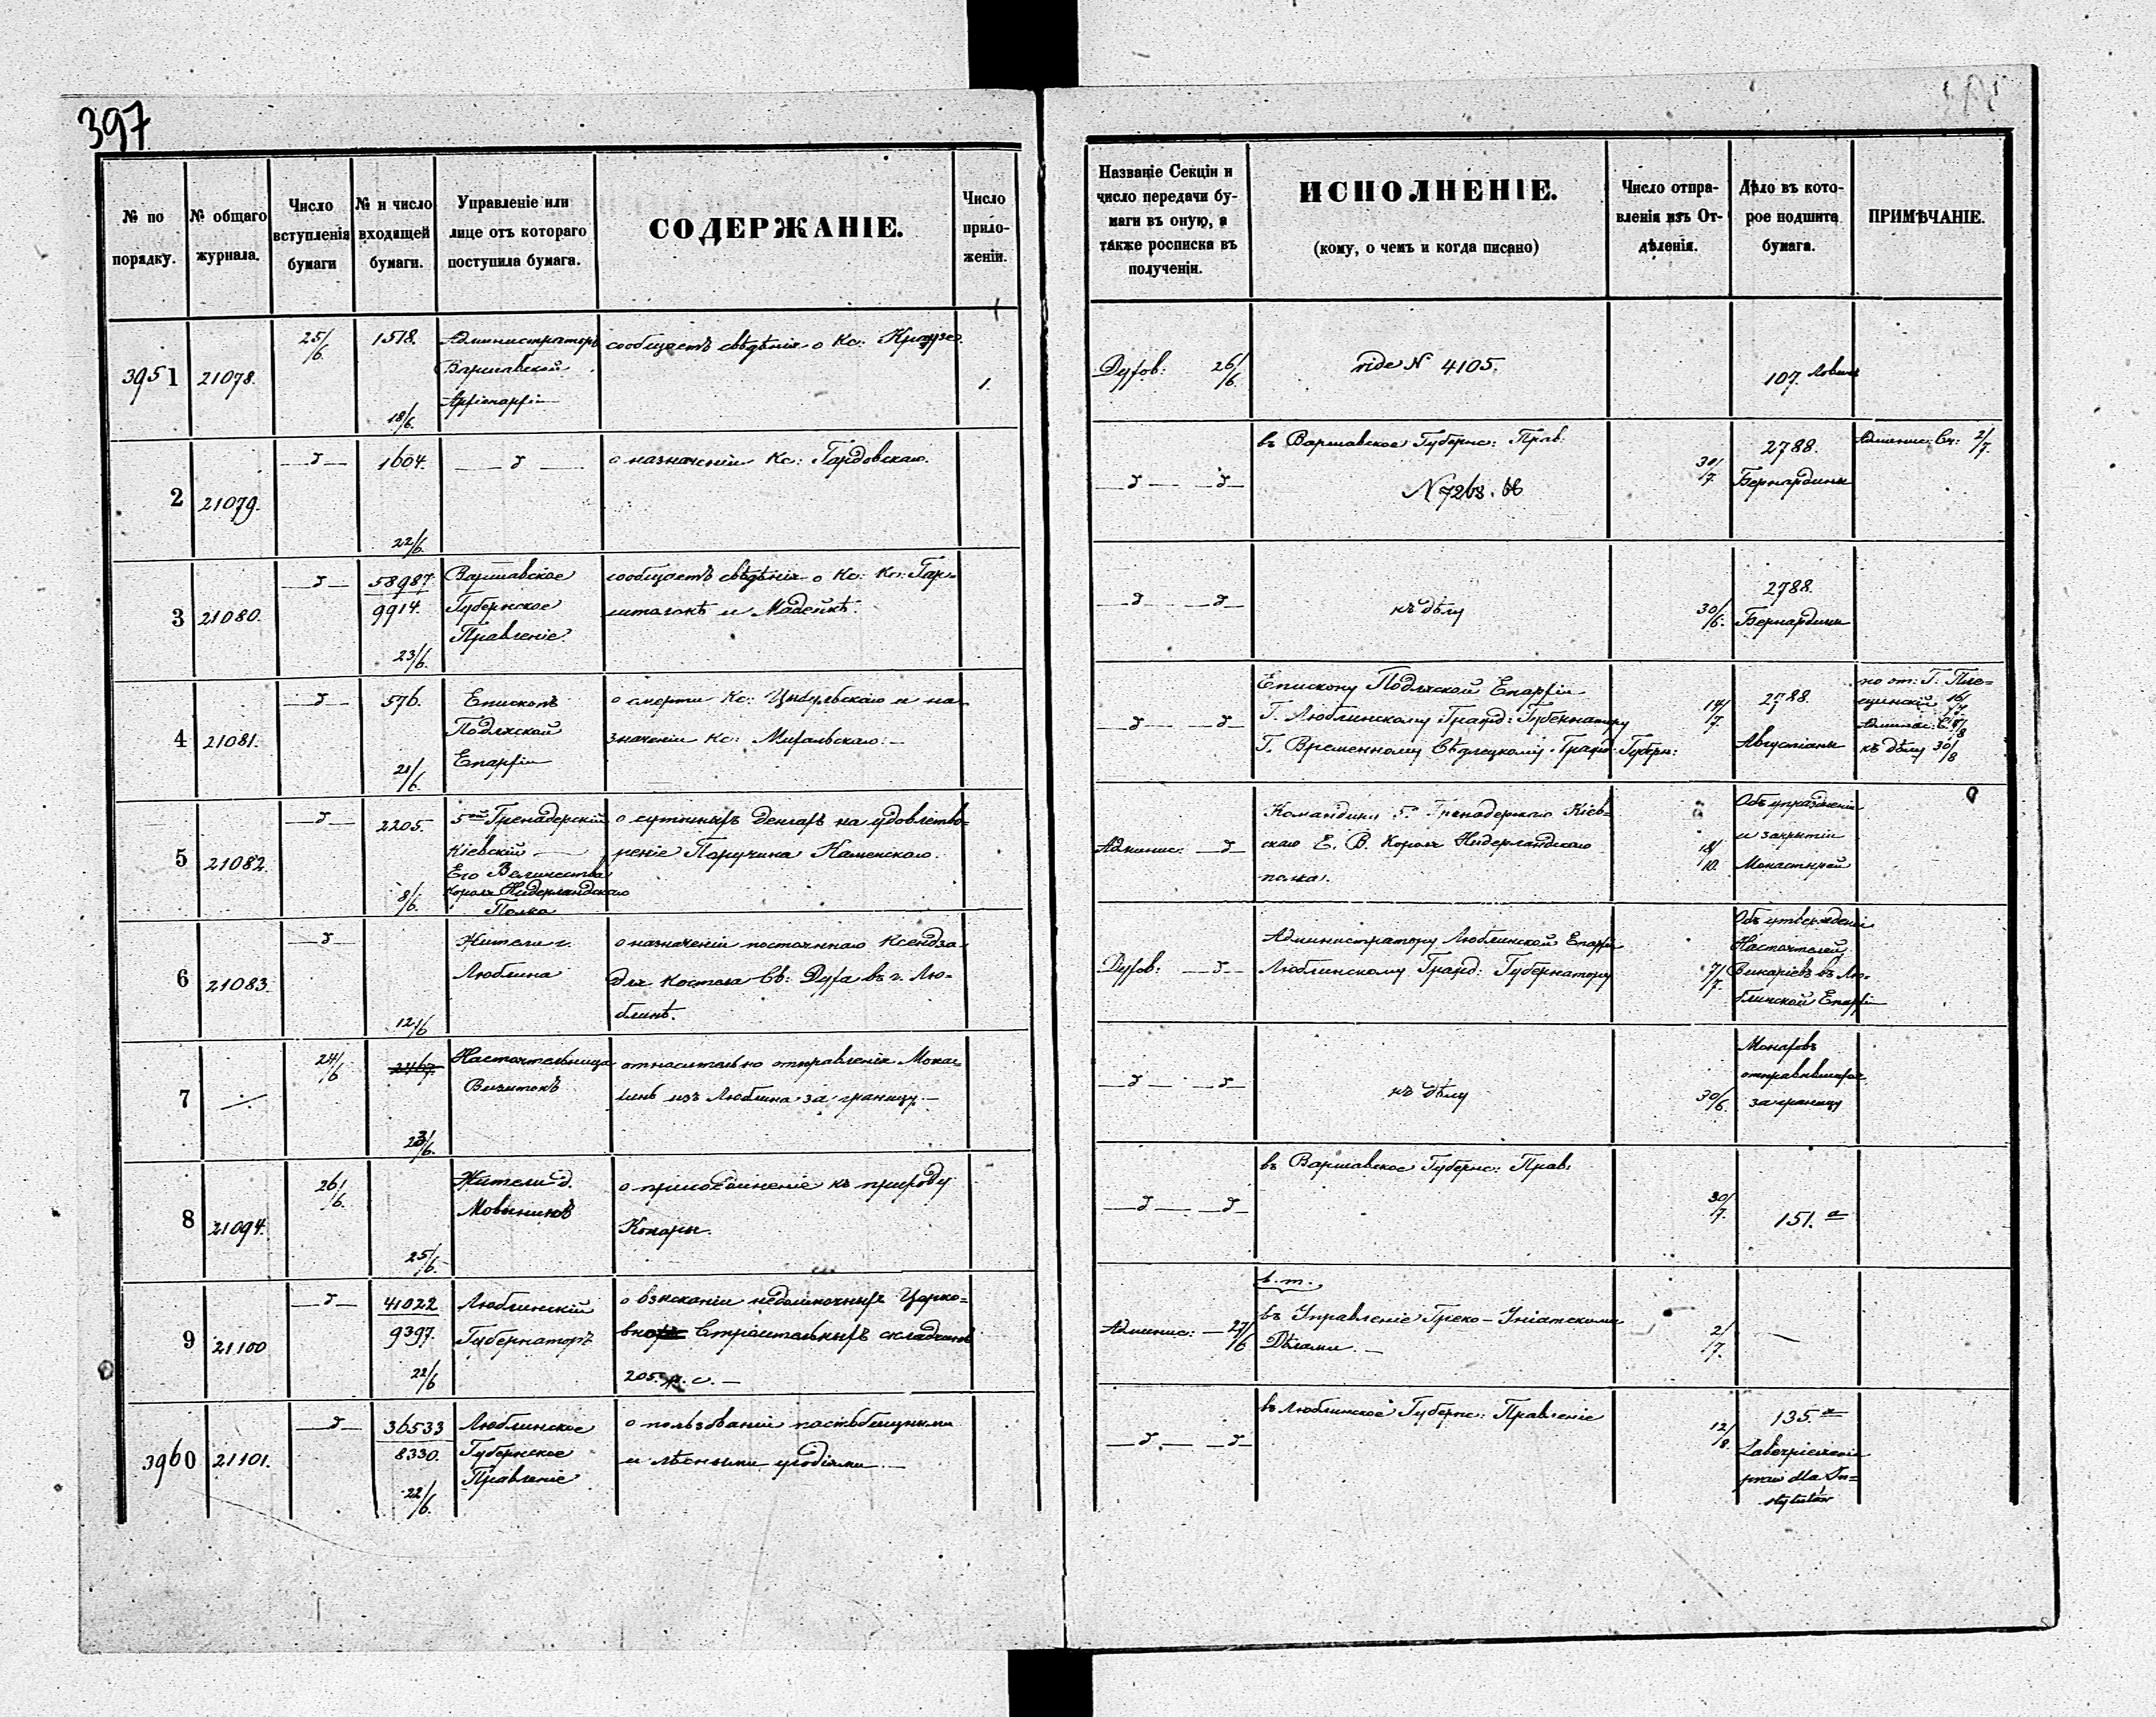 397
№ по порядку.
№ общаго журнала.
Число вступленія бумаги
№ и число входящей бумаги.
Управленіе или лице отъ котораго поступила бумага.
СОДЕРЖАНІЕ.
Число прило-
женіи.
Названіе Секціи и
число передачи бу-
маги въ оную, а
также росписка въ
полученіи.
ИСПОЛНЕНІЕ.
(кому, о чемъ и когда писано)
Число отпра-
вленія изъ От-
дѣленія.
Дѣло въ кото-
рое подшита
бумага.
ПРИМѢЧАНІЕ.
3951
21078.
25/6
1518.
18/6.
Администраторъ
Варшавской
Архіепархіи
сообщаетъ свѣдѣнія о Кс: Краузе.
1.
Духов: 26/6
vide N 4105.
107.
2
21079.
д
1604.
22/6.
д
о назначеніи Кс: Гардовскаго.
д д
въ Варшавское Губернс: Прав:
N 7268. 66
30/7.
2788.
Бернардины
Админис: Сч: 2/7.
3
21080.
д
58987.
9914.
23/6.
Варшавское
Губернское
Правленіе.
сообщаетъ свѣдѣнія о Кс: Кс: Гар-
и Мадейкѣ.
д д
къ дѣлу
30/6.
2788.
Бернардины
4
21081.
д
576.
21/6.
Епископъ
Подляской
Епархіи
о смерти Кс: и на-
значеніи Кс: Михальскаго.
д д
Епископу Подляской Епархіи
Г. Люблинскому Гражд: Губернатору
Г. Временному Сѣдлецкому Гражд: Губерн:
14/7.
2788.
Августіаны
по от: Г. Пле-
щинскій 16/7
къ дѣлу 30/8
5
21082.
д
2205.
8/6.
5ый Гренадерскій
Кіевскій
Его Величества
Короля Нидерландскаго
Полка
о суточныхъ деньгахъ на удовлетво-
реніе Поручика Каменскаго.
Админис: д
Командиру 5го Гренадерскаго Кіев-
скаго Е. В. Короля Нидерландскаго
полка.
18/10.
Объ упраздненіи
и закрытіи
Монастырей
6
21083.
д
12/6
Жители г.
Люблина
о назначеніи постояннаго Ксендза
для Костела Св: Духа въ г. Лю-
блинѣ.
Духов: д
Администратору Люблинской Епархіи
Люблинскому Гражд: Губернатору
7/7.
Объ утвержденіи
Настоятелей
Викаріевъ въ Лю-
блинской Епархіи
7
24/6
2467.
23/6.
Настоятельница
Визитокъ
относительно отправленія Мона-
хинь изъ Люблина за границу.
д д
къ дѣлу
30/6.
Монаховъ
отправившихся
за границу
8
21094.
26/6.
25/6.
Жители д.
о присоединеніе къ приходу
д д
въ Варшавское Губернс: Прав:
30/7.
151. a
9
21100
д
41022
9397.
22/6
Люблинскій
Губернаторъ
о взысканіи недоимочныхъ Церко-
вно Строительныхъ складчинъ
205. р. с.
Админис: 27/6
в. т.
въ Управленіе Греко-Уніатскими
Дѣлами.
2/7.
3960
21101.
д
36533
8330.
22/6.
Люблинское
Губернское
Правленіе
о пользованіи пастбищными
и лѣсными угодіями.
д д
въ Люблинское Губернс: Правленіе
12/8.
135. a
Zabezpieczenie
praw dla In-
stytutów